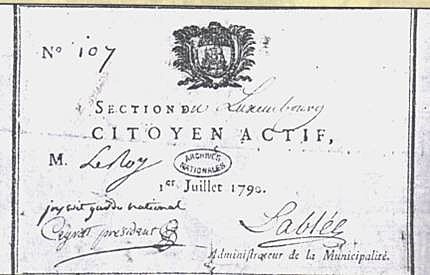 N° 107
SECTION du Luxembourg
CITOYEN ACTIF,
M. LeRoy
ARCHIVES
NATIONALES
1er. Juillet 1790.
national
président
Sablée
Administrateur de la Municipalité.